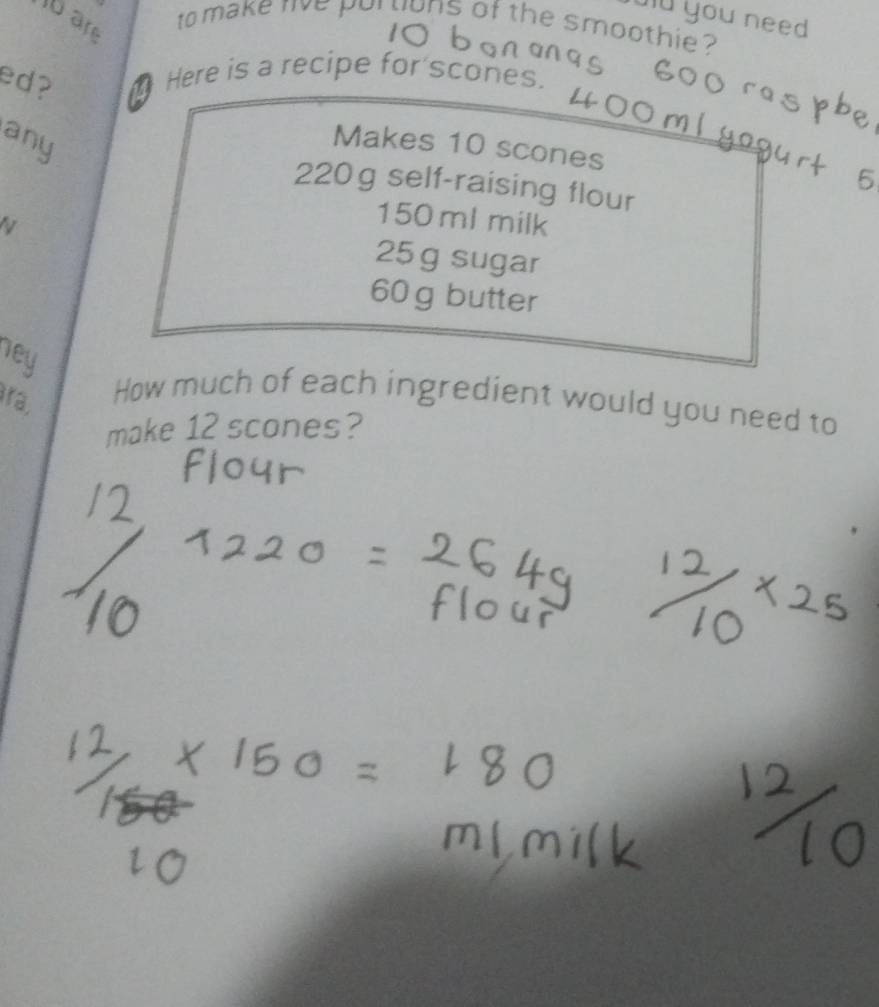 you need
to make five portions of the smoothie?
10 bananas 600 raspbe
400ml yogurt 5
are
ed?
any
N
ney
ara.
14 Here is a recipe for scones.
Makes 10 scones
220g self-raising flour
150ml milk
25g sugar
60g butter
How much of each ingredient would you need to
make 12 scones?
Flour
12/10 × 220 = 264g
flour
12/10 × 25
12/10 × 150 = 180
ml milk
12/10